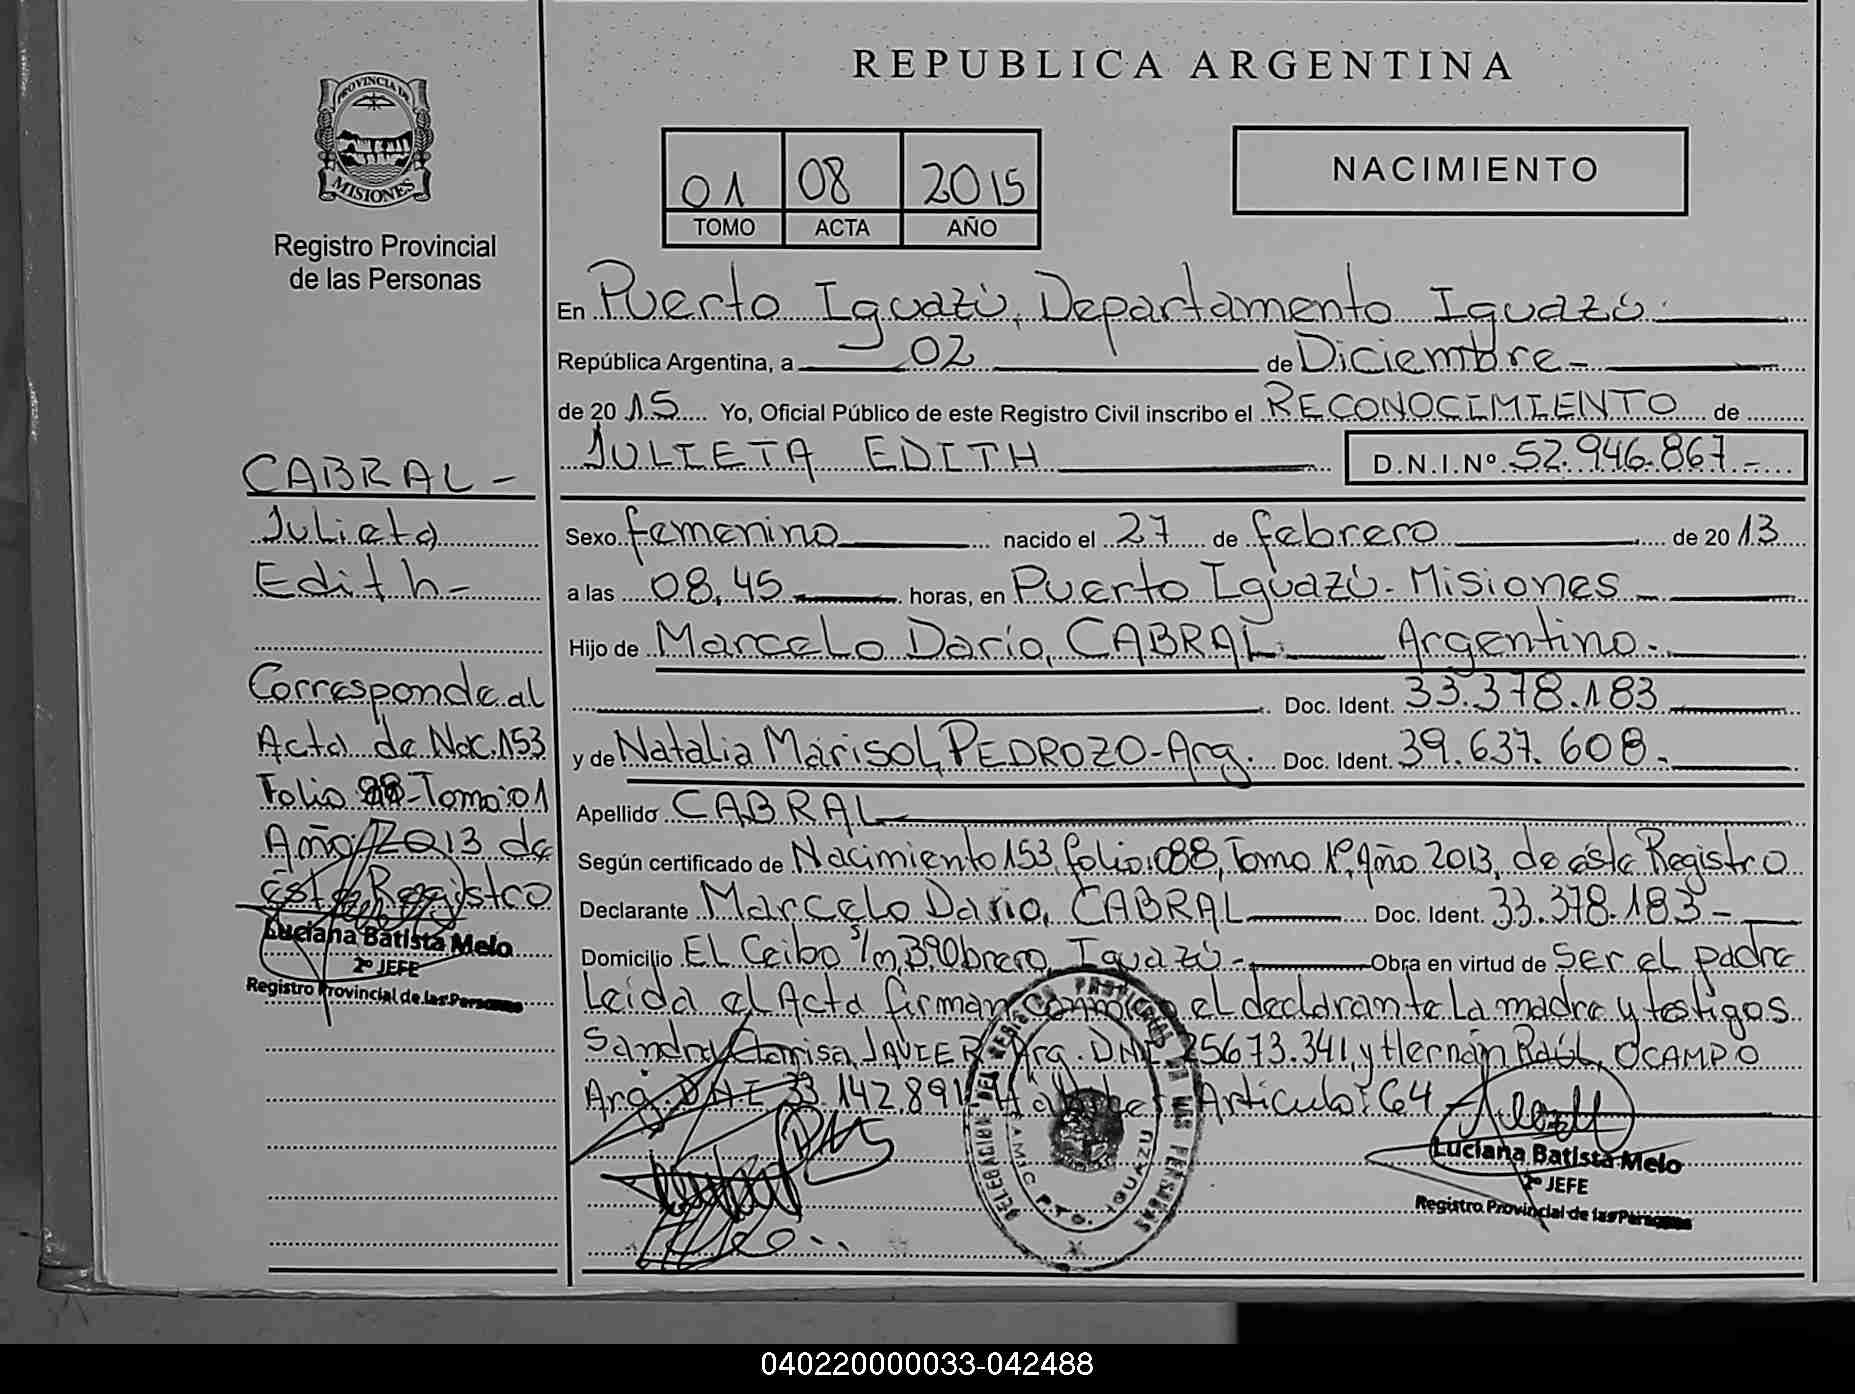 REPUBLICA ARGENTINA
PROVINCIA DE
MISIONES
Registro Provincial
de las Personas
01 08 2015
TOMO ACTA AÑO
NACIMIENTO
En Puerto Iguazú, Departamento Iguazú.
República Argentina, a 02 de Diciembre-
de 2015 Yo, Oficial Público de este Registro Civil inscribo el RECONOCIMIENTO de
JULIETA EDITH D.N.I.Nº 52.946.867-
Sexo femenino nacido el 27 de febrero de 2013
a las 08,45 horas, en Puerto Iguazú- Misiones
Hijo de Marcelo Darío, CABRAL. Argentino.
Doc. Ident. 33.378.183
y de Natalia Marisol, PEDROZO-Arg. Doc. Ident. 39.637.608-
Apellido CABRAL
Según certificado de Nacimiento 153, folio:088, Tomo 1º, Año 2013, de éste Registro
Declarante Marcelo Dario, CABRAL Doc. Ident. 33.378.183-
Domicilio El Ceibo s/n, Bº Obrero, Iguazú- Obra en virtud de Ser el padre
Leída el Acta firman conmigo el declarante La madre y testigos
Sandra Clarisa, JAVIER Arg. DNI 25673.341, y Hernán Raúl, OCAMPO
Arg. DNI 33.142.891 Artículo: 64
CABRAL-
Julieta
Edith-
Corresponde al
Acta de Nac. 153
Folio 88-Tomo:01
Año 2013 de
éste Registro
Luciana Batista Melo
2º JEFE
Registro Provincial de las Personas
DELEGACION DEL REGISTRO PROVINCIAL DE LAS PERSONAS
SAMIC PTO. IGUAZU
Luciana Batista Melo
2º JEFE
Registro Provincial de las Personas
040220000033-042488